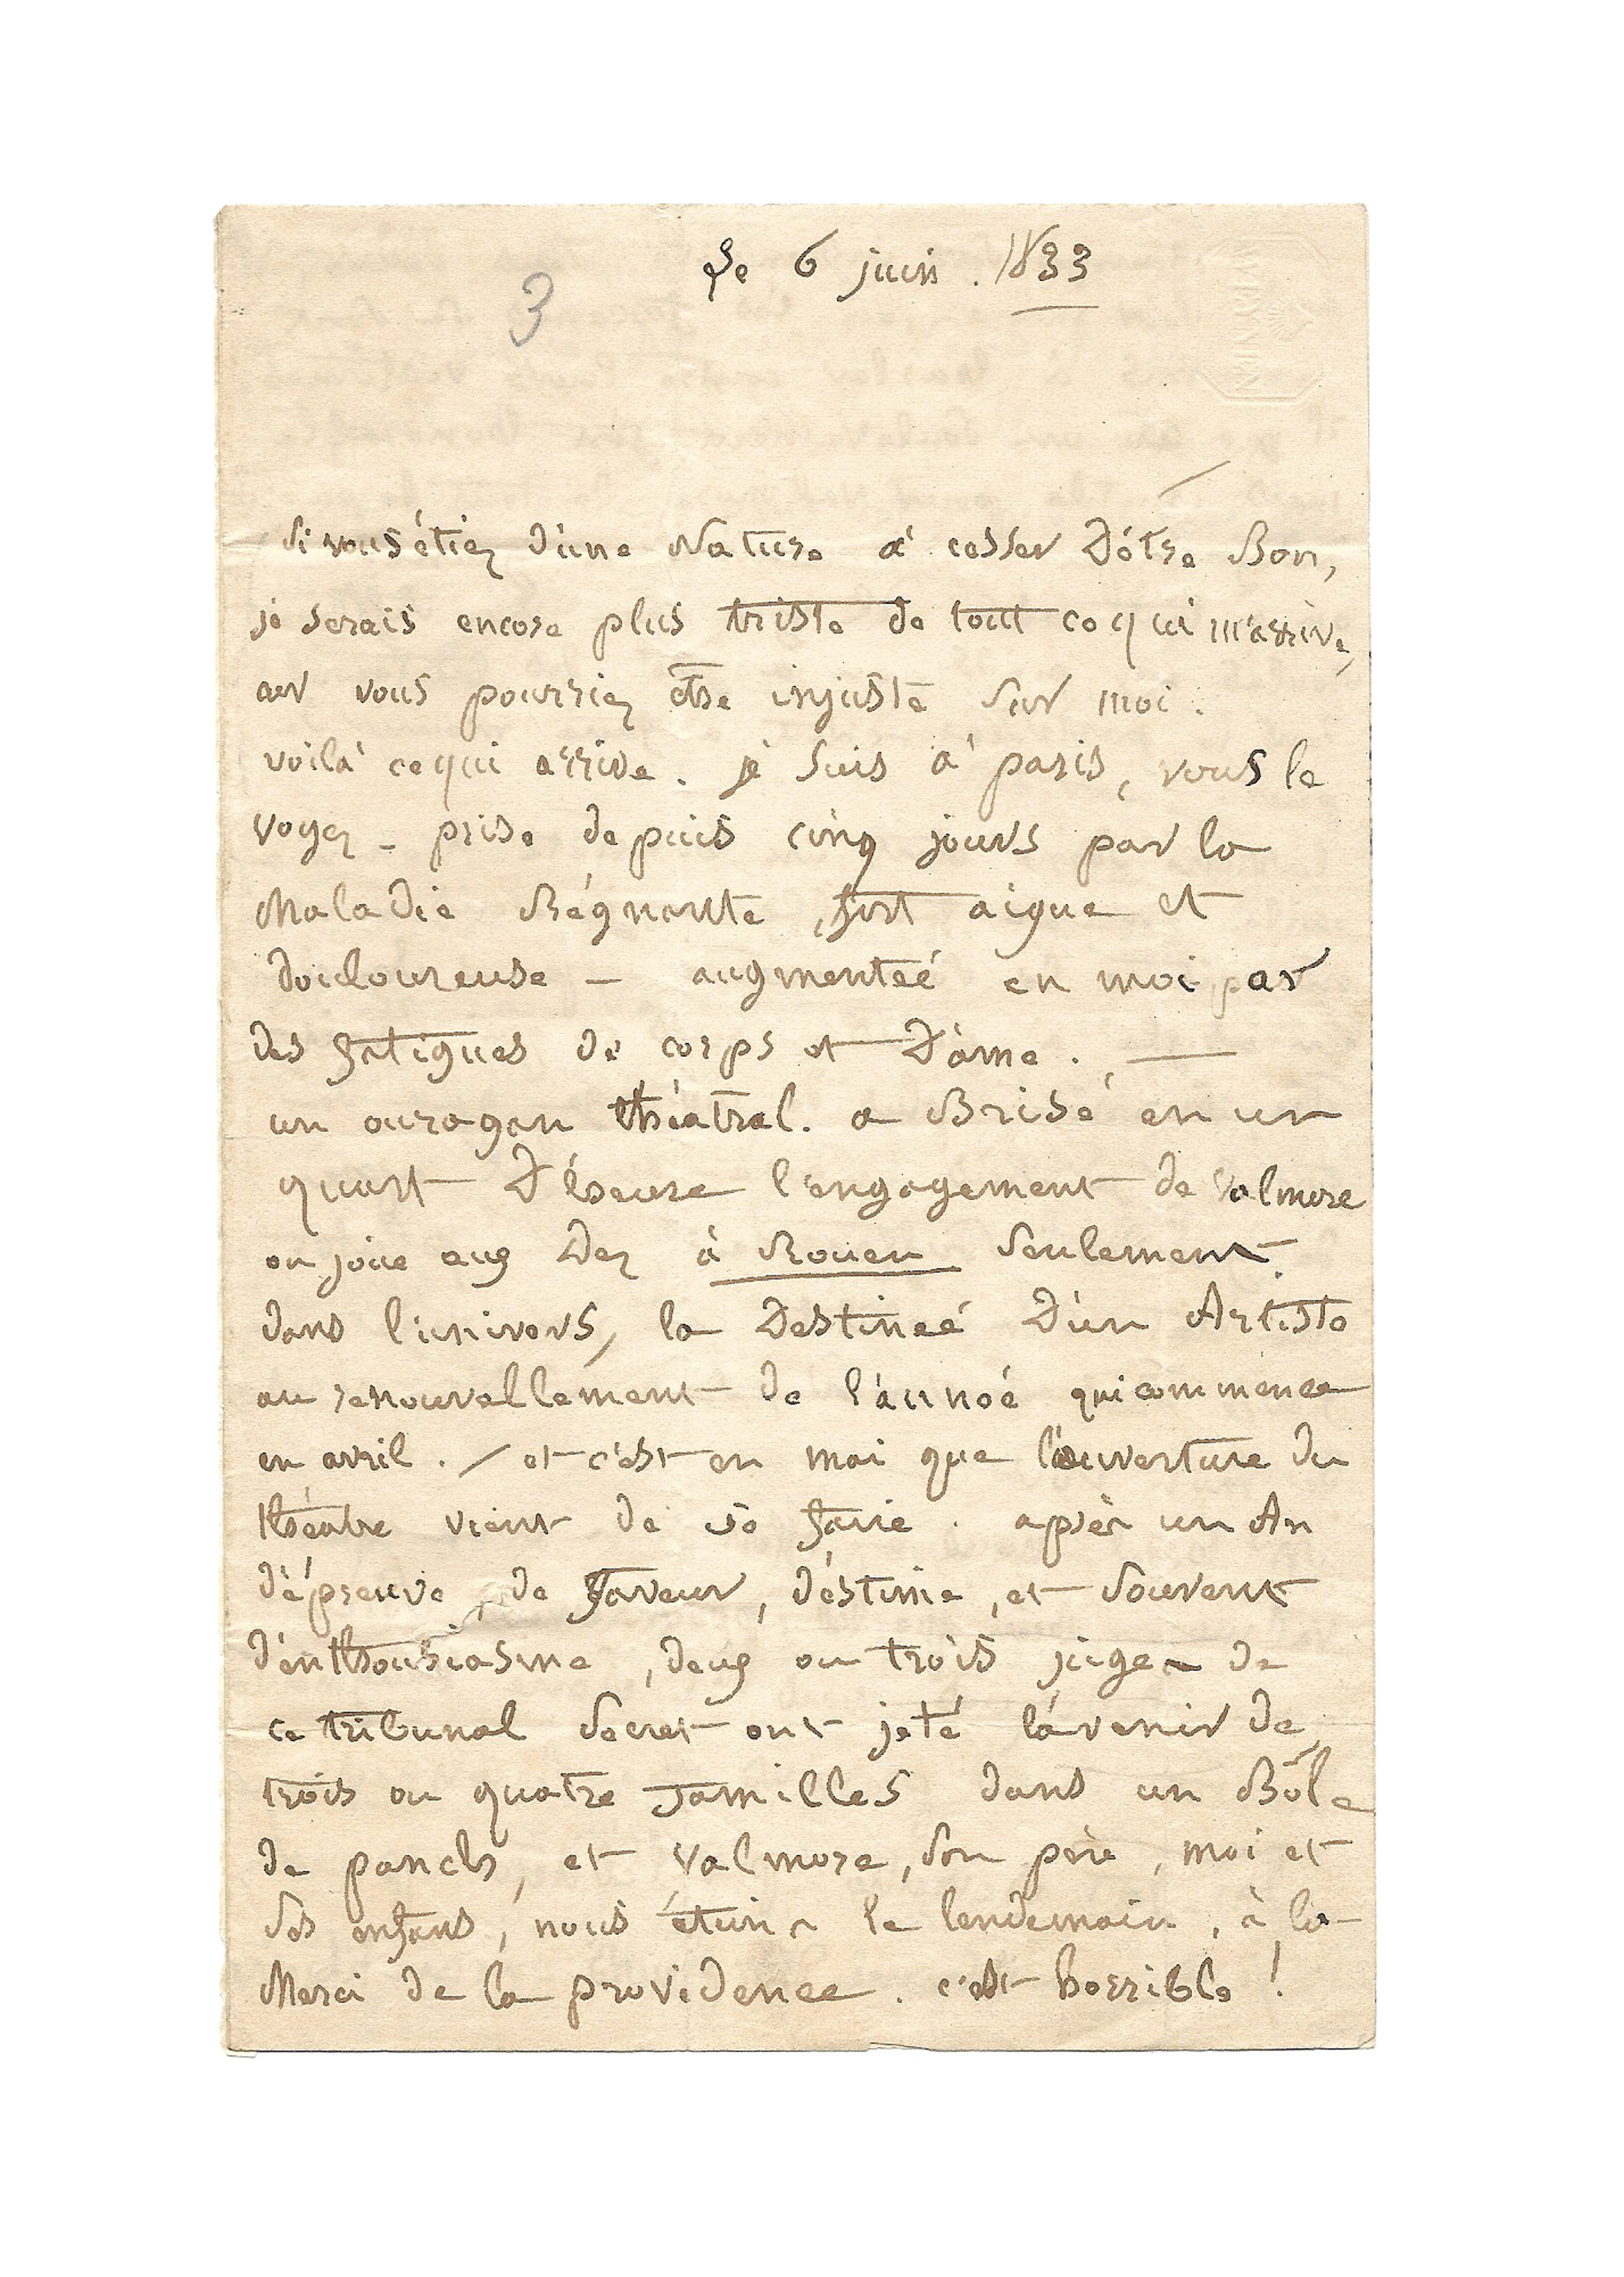 Le 6 juin . 1833
3
si vous étiez d'une Nature à cesser d'être Bon,
je serais encore plus triste de tout ce qui m'arrive,
car vous pourriez être injuste sur moi.
voilà ce qui arrive. je suis à paris, vous le
voyez - prise depuis cinq jours par la
Maladie Régnante, fort aigue et
douloureuse — augmenteé en moi par
des fatigues de corps et d'âme. —
un ouragan théâtral. a Brisé en un
quart d'heure l'engagement de Valmore
on joue aux Dez à Rouen seulement
dans l'univers, la Destineé d'un Artiste
au renouvellement de l'année qui commence
en avril. / et c'est en mai que l'ouverture du
théâtre vient de se faire. après un An
d'épreuve, de faveur, d'estime, et souvent
d'enthousiasme, deux ou trois juges de
ce tribunal secret ont jeté l'avenir de
trois ou quatre familles dans un Bôle
de panch, et Valmore, son père, moi et
ses enfans, nous étions le lendemain, à la
Merci de la providence. c'est horrible !